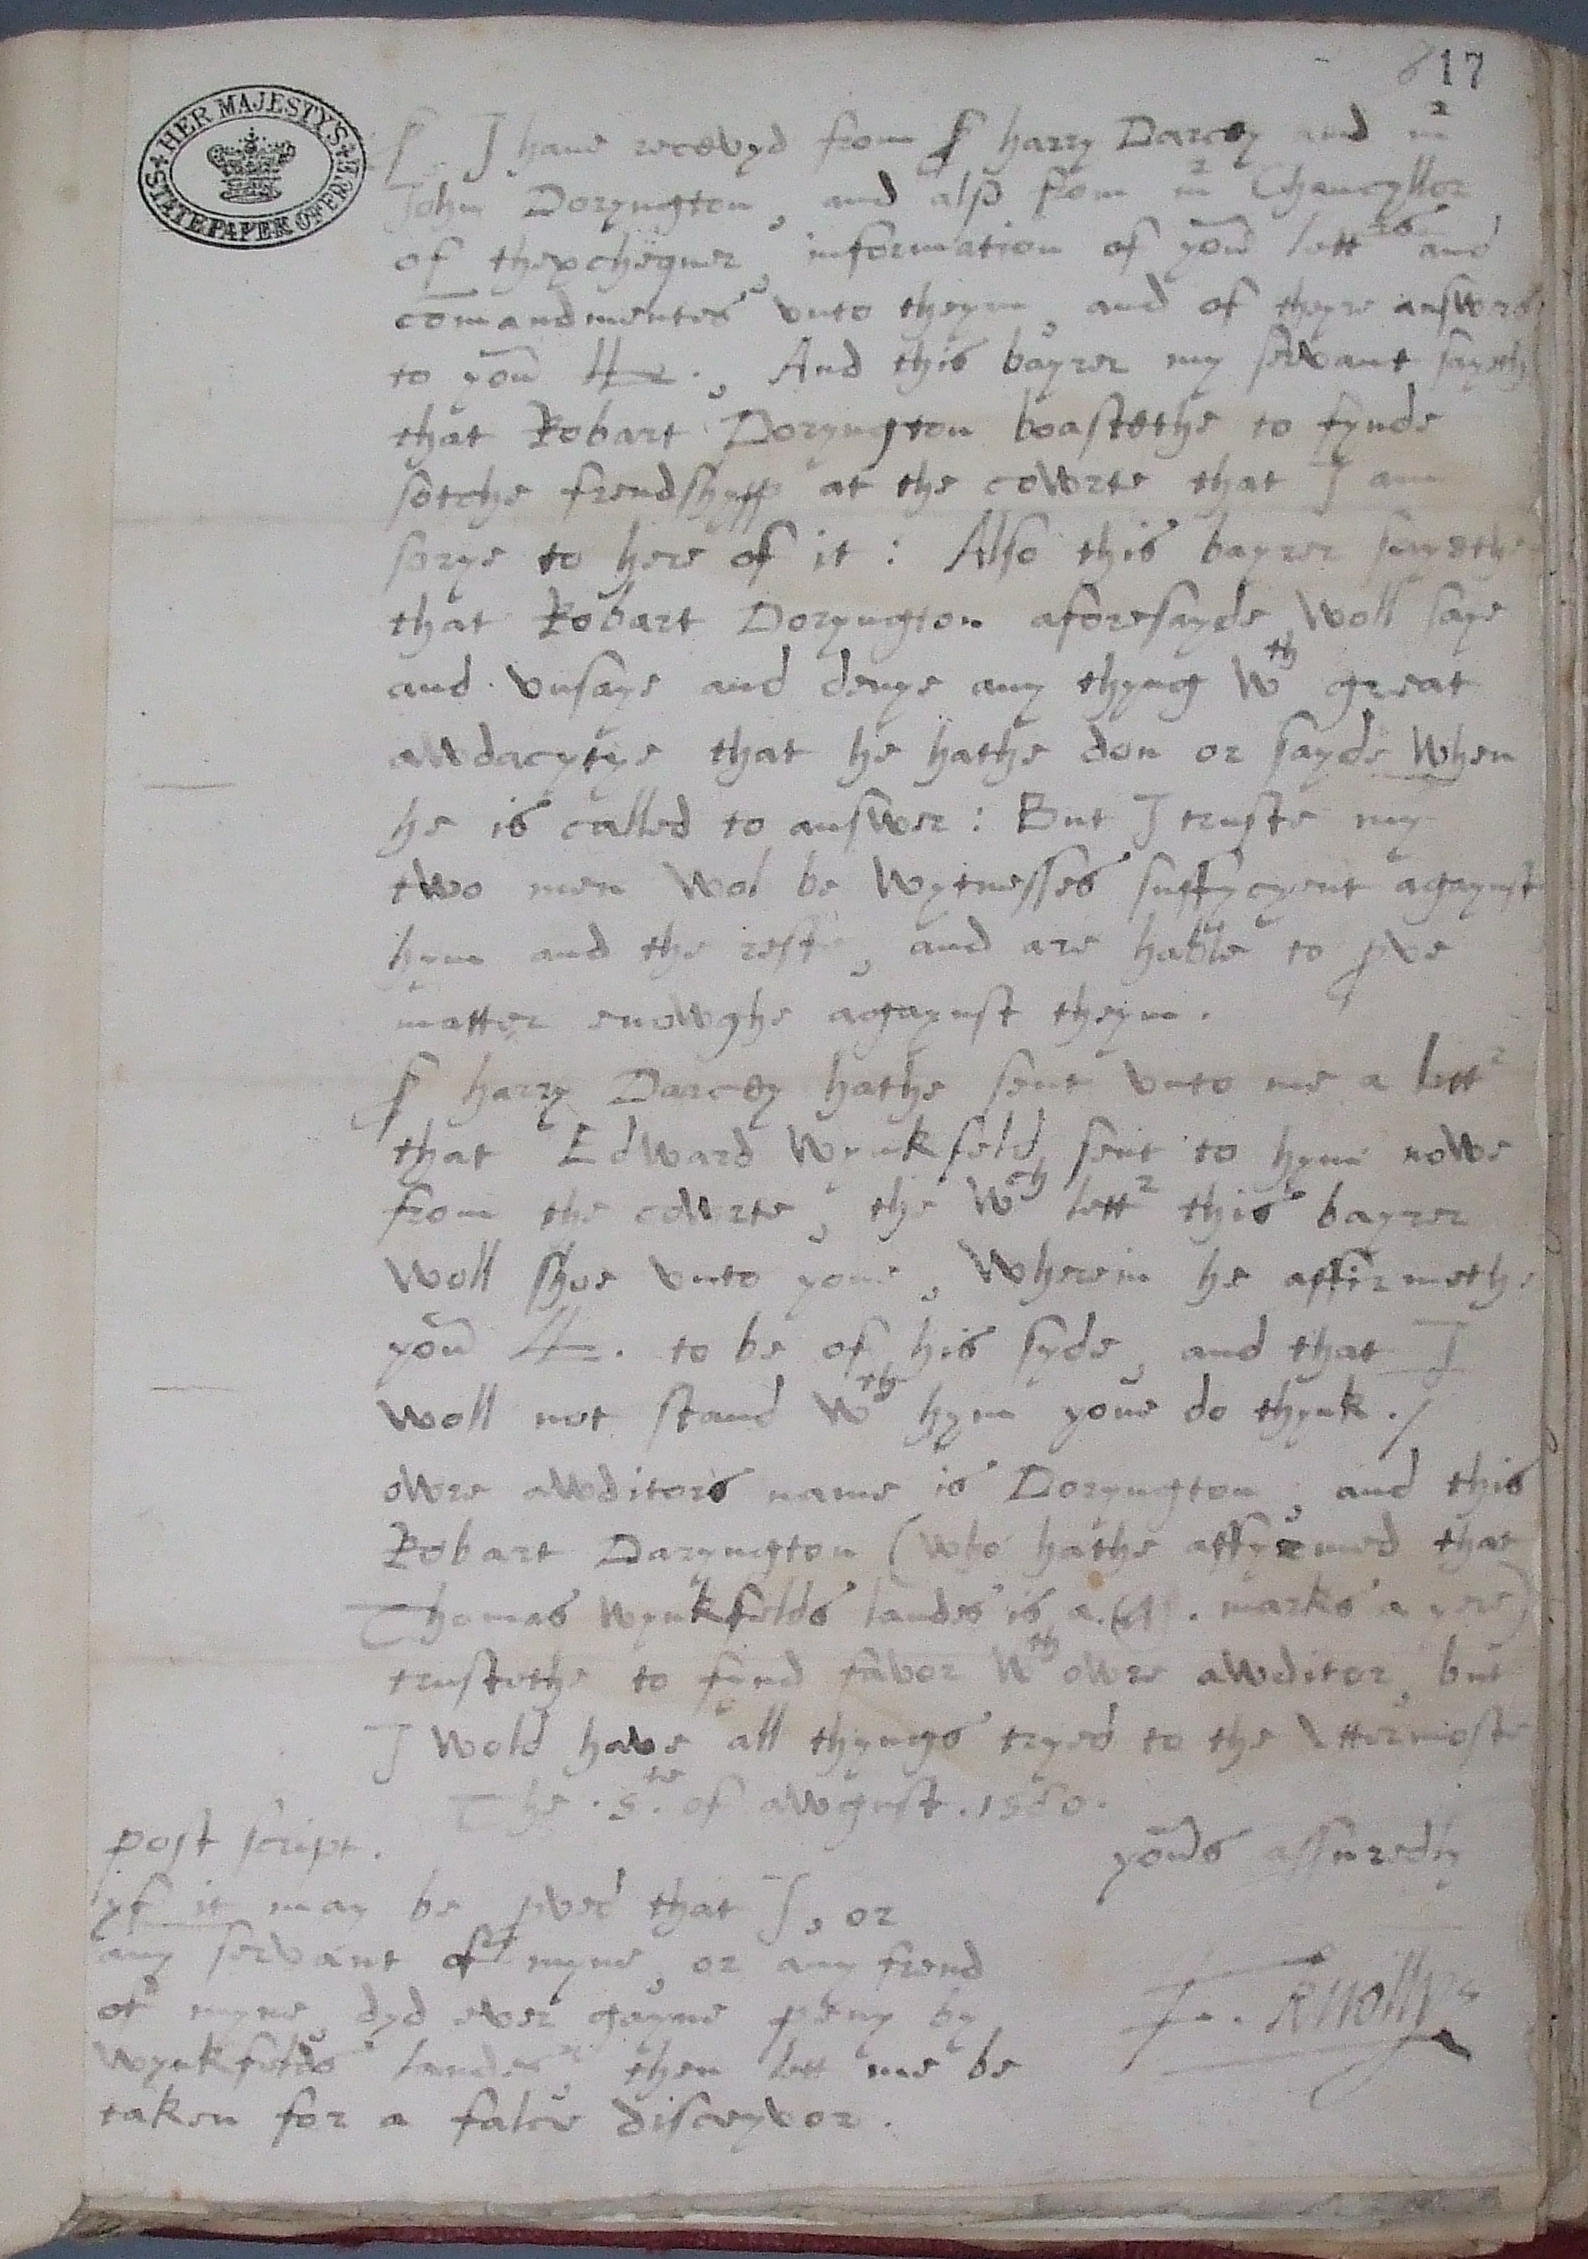 17
HER MAJESTY'S STATE PAPER OFFICE
Sr. I have recevyd from Sr harry Darcey and mr
John Doryngton, and also from mr Chancyllor
of thexchequer, information of your lettres and
comandmentes unto theym, and of theyre answers
to your L. And this bayrer my servant sayeth
that Robart Doryngton boastethe to fynde
sotche frendshypp at the cowrte that I am
sorye to here of it : Also this bayrer sayethe
that Robart Doryngton aforesayde woll saye
and unsaye and denye any thyng wth great
awdacytye that he hathe don or sayde when
he is called to answer : But I truste my
two men wol be wytnesses suffycyent agaynst
hym and the reste, and are hable to prove
matter enowghe agaynst theym.
Sr harry Darcey hathe sent unto me a lettr
that Edward Wynkfeld sent to hym nowe
from the cowrte, the wch lettr this bayrer
woll shoe unto youe, wherein he affirmethe
your L. to be of his syde, and that I
woll not stand wth hym youe do thynk ./
owre awditors name is Doryngton, and this
Robart Daryngton (who hathe affyrmed that
Thomas Wynkfelds landes is a . marks a yere)
trustethe to fynd favor wth owre awditor, but
I wold have all thyngs tryed to the uttermoste
The .5.te of awgust .1560.
yours assuredly
F. Knollys
post script.
yf it may be proved that I, or
any servant of myne, or any frend
of myne, dyd ever gayne peny by
wynkfelds landes, then lett me be
taken for a false disceyvor.